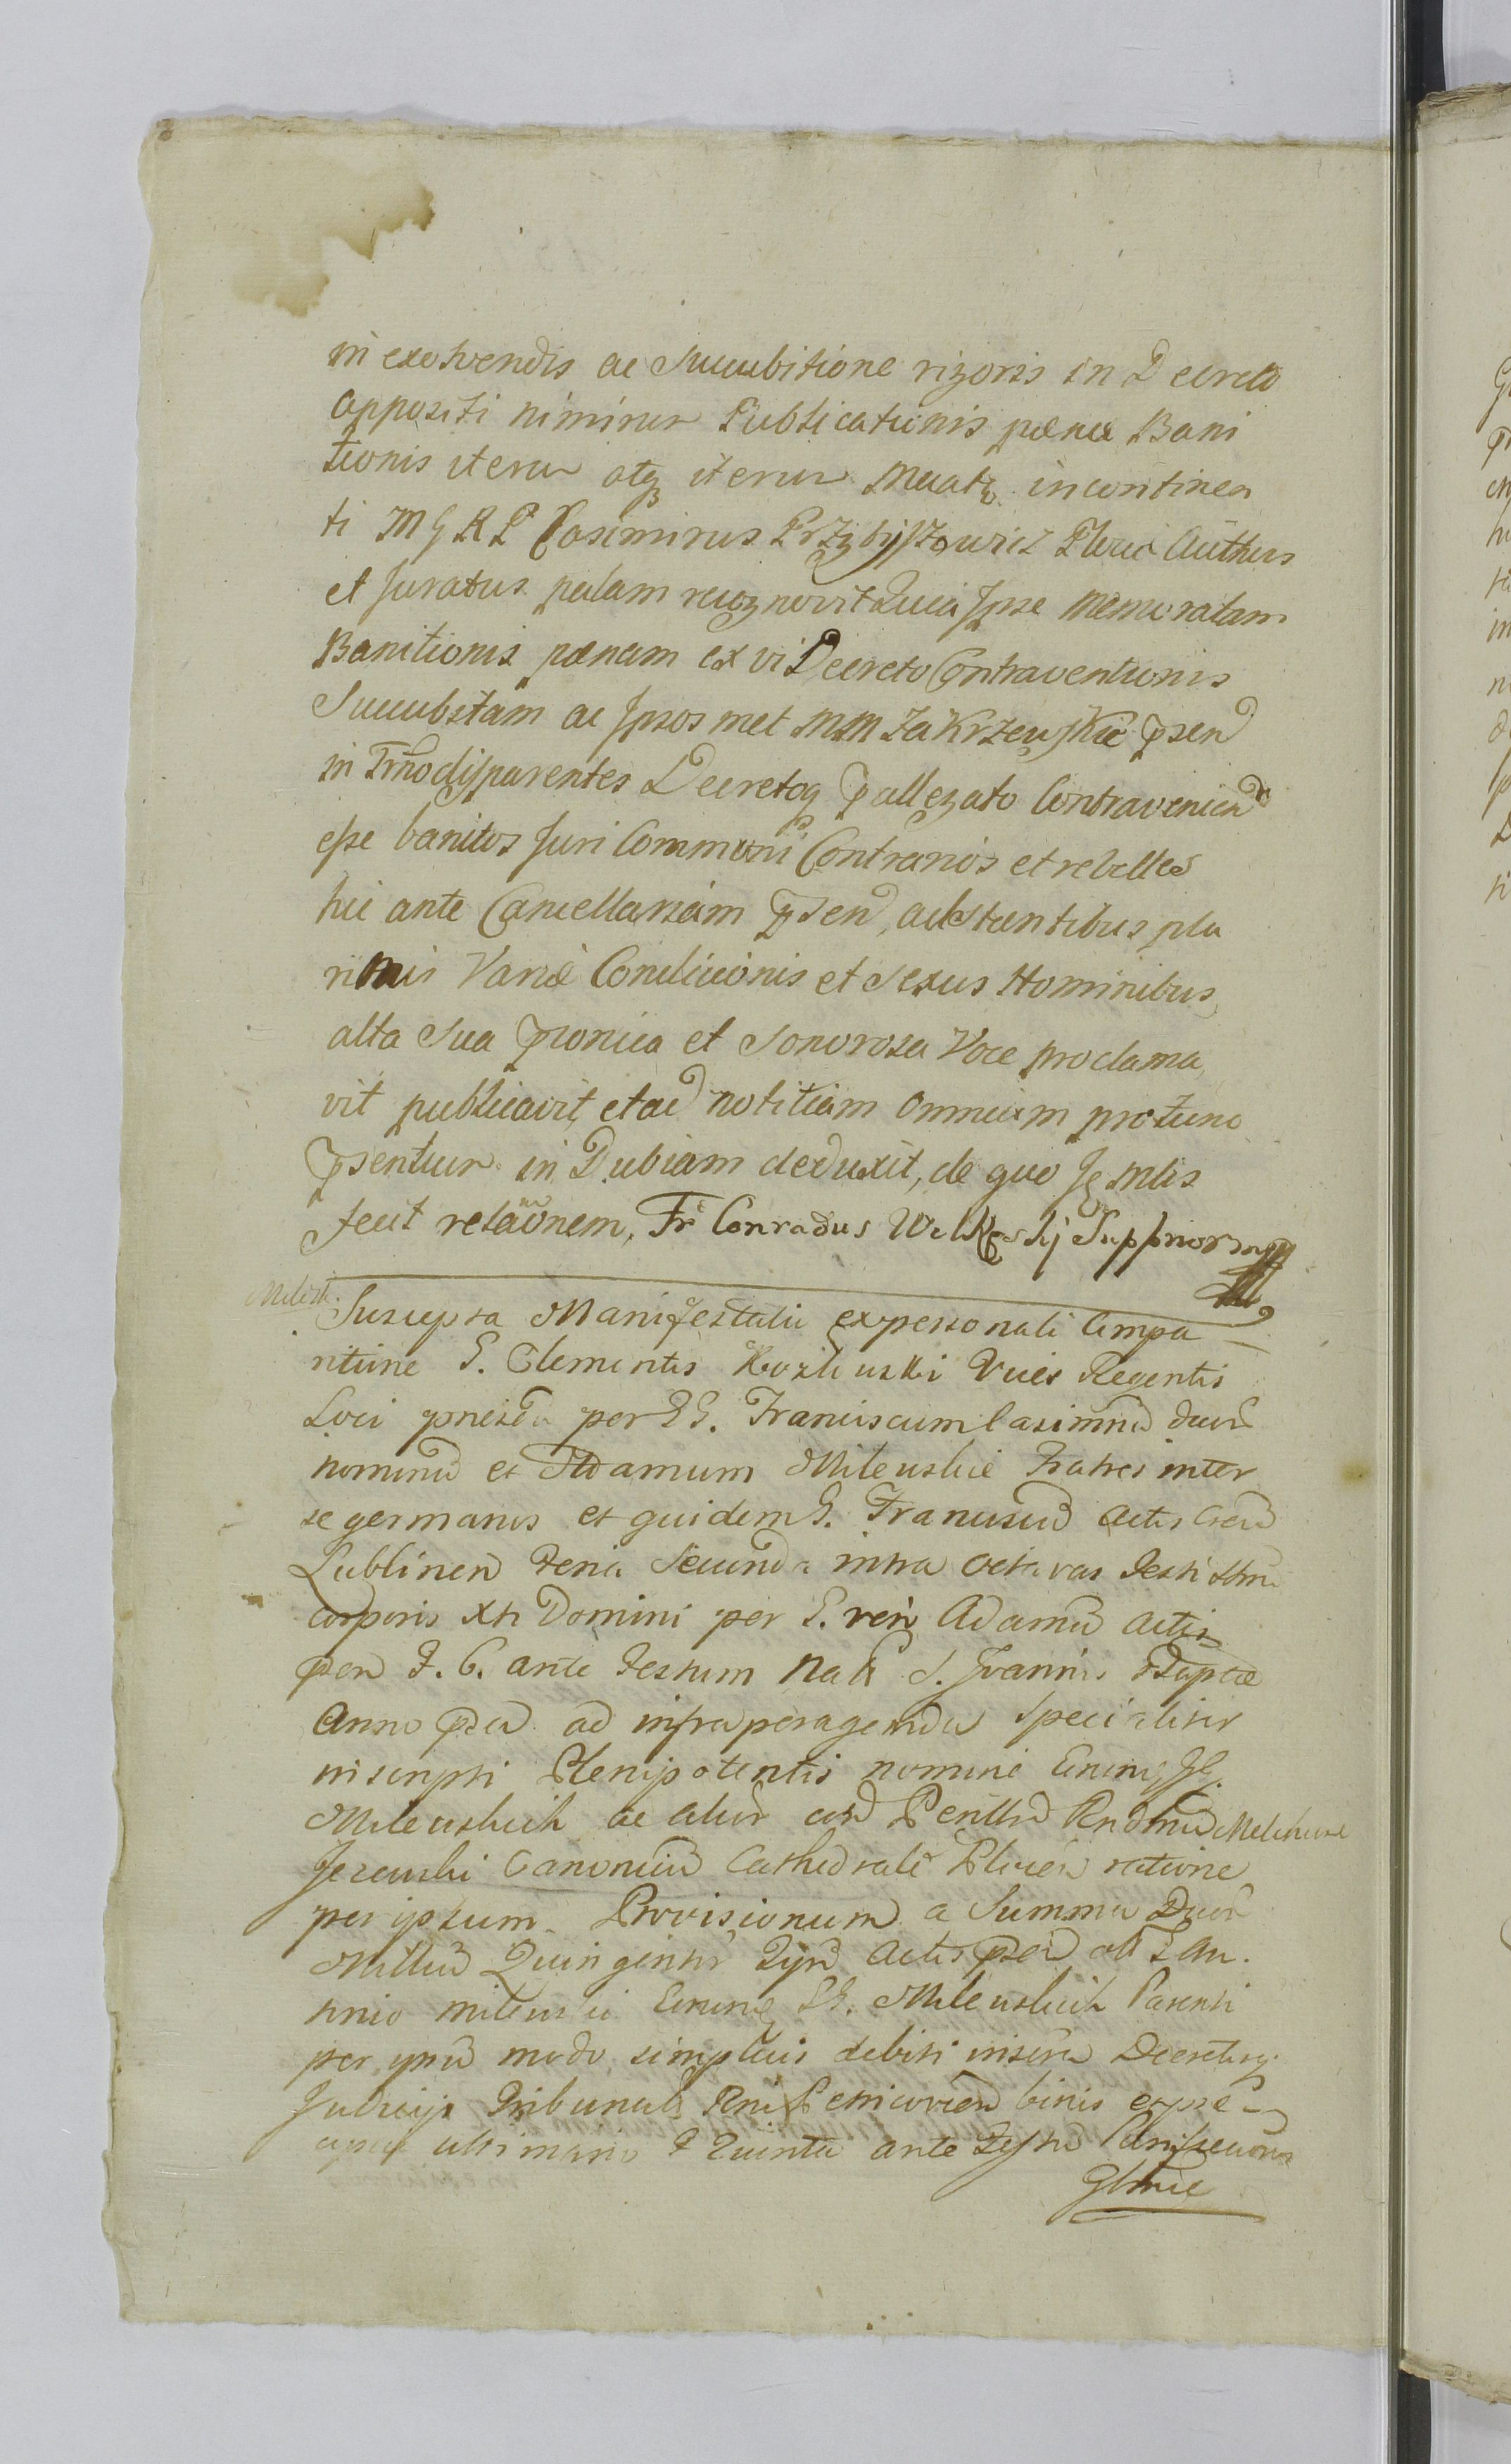 in exolvendis ac Succubitione rigoris in Decreto
appositi nimirum Publicationis pænæ Bani
tionis iterum atq iterum incontinen
ti M G R P Casimirus Przybyszowicz Author
et Juratus palam recognovit Quia Ipse memoratam
Banitionis pænam ex vi Decreto Contraventionis
Succubitam ac Ipsos met MM Zakrzewskie psen
in Trno disparentes Decretoq pallegato Contravenien
esse banitos Juri Communi Contrarios et rebelles
hic ante Cancellariam psen, adstantibus plu
rimis Variæ Condicionis et Sexus Hominibus,
alta Sua pronica et Sonorosa Voce proclama
vit publicavit, et ad notitiam omnium protunc
psentium in Dubiam deduxit, de quo Jq Mtis
fecit relationem, Fr Conradus Supprior mp
Milewsk.
Suscepta Manifestatio ex personali Compa
ritione G. Clementis Vices Regentis
Loci per GG. Franciscum Casimirum duor
nominu et Adamum Milewskie Fratres inter
se germanos et quidem G. Franciscum Actis
Lublinen Feria Secunda intra octavas Festi
Corporis Xti Domini per G. vero Adamu Actis
psen F. 6. ante Festum Nati S. Joannis Baptæ
Anno psen ad infra peragenda specialiter
inscripti Plenipotentis nomine
Milewskich ac alior
Canonicu Cathedrale ratione
per ipsum Provisionum a Summa Duor
Milliu Quingentor actis psen
nio Milewski Milewskich Parenti
per ipsu modo simplicis debiti inscra Decretisq
Judicijs Tribunalis Rni binis
ultimario F Quinta ante Festu
Gloriæ